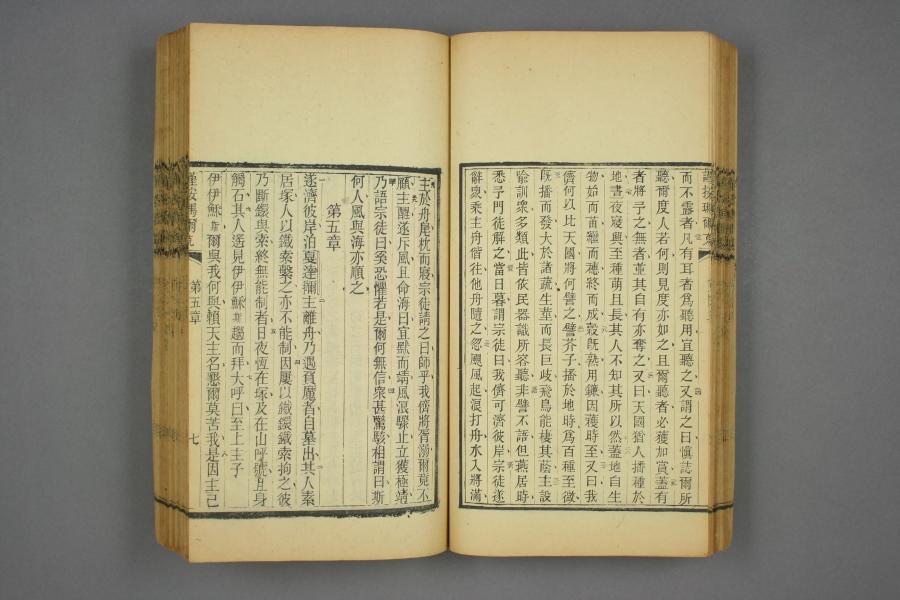 而不露者凡有耳者爲聽用宜聽之又謂之曰愼誌爾所
聽爾度人若何則見度亦如之且爾聽者必獲加賞蓋有
者將子之無者並其自有亦奪之又曰天國猶人播種於
地晝夜寢興至種萌且長其人不知其所以然蓋地自生
物始而苗繼而穗終而成穀旣熟用鐮因穫時至又曰我
儕何以比天國將何譬之譬芥子播於地時爲百種至微
旣播而發大於諸蔬生莖而長巨歧飛鳥能棲其蔭主設
喻訓衆多類此皆依民器識所容聽非譬不語但燕居時
悉予門徒解之當日暮謂宗徒曰我儕可濟彼岸宗徒遂
辭衆乘主舟偕往他舟隨之忽颶風起浪打舟水入將滿
主於舟尾枕而寢宗徒請之曰師乎我儕將胥溺爾竟不
顧主醒遂斥風且命海曰宜默而靖風浪驟止立獲極靖
乃語宗徒曰奚恐懼若是爾何無信衆甚驚駭相謂曰斯
何人風與海亦順之
第五章
遂濟彼岸泊戛達擱主離舟乃遇負魔者自墓出其人素
居塚人以鐵索繫之亦不能制因屢以鐵鐶鐵索拘之彼
乃斷鐶與索終無能制者日夜恆在塚及在山呼號且身
觸石其人遙見伊伊穌斯趨而拜大呼曰至上主子
伊伊穌斯爾與我何與賴天主名懇爾莫苦我是因主已
謹按瑪爾克
第五章
七